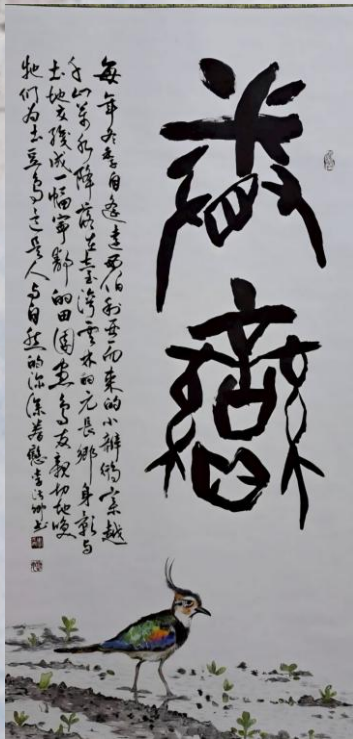 眷戀
每年冬季自遙遠西伯利亞而來的小辮鴴穿越
千山萬水降落在臺灣雲林的元長鄉身影與
土地交織成一幅寧靜的田園畫鳥友親切地喚
牠們為土豆鳥這是人與自然的深深眷戀李